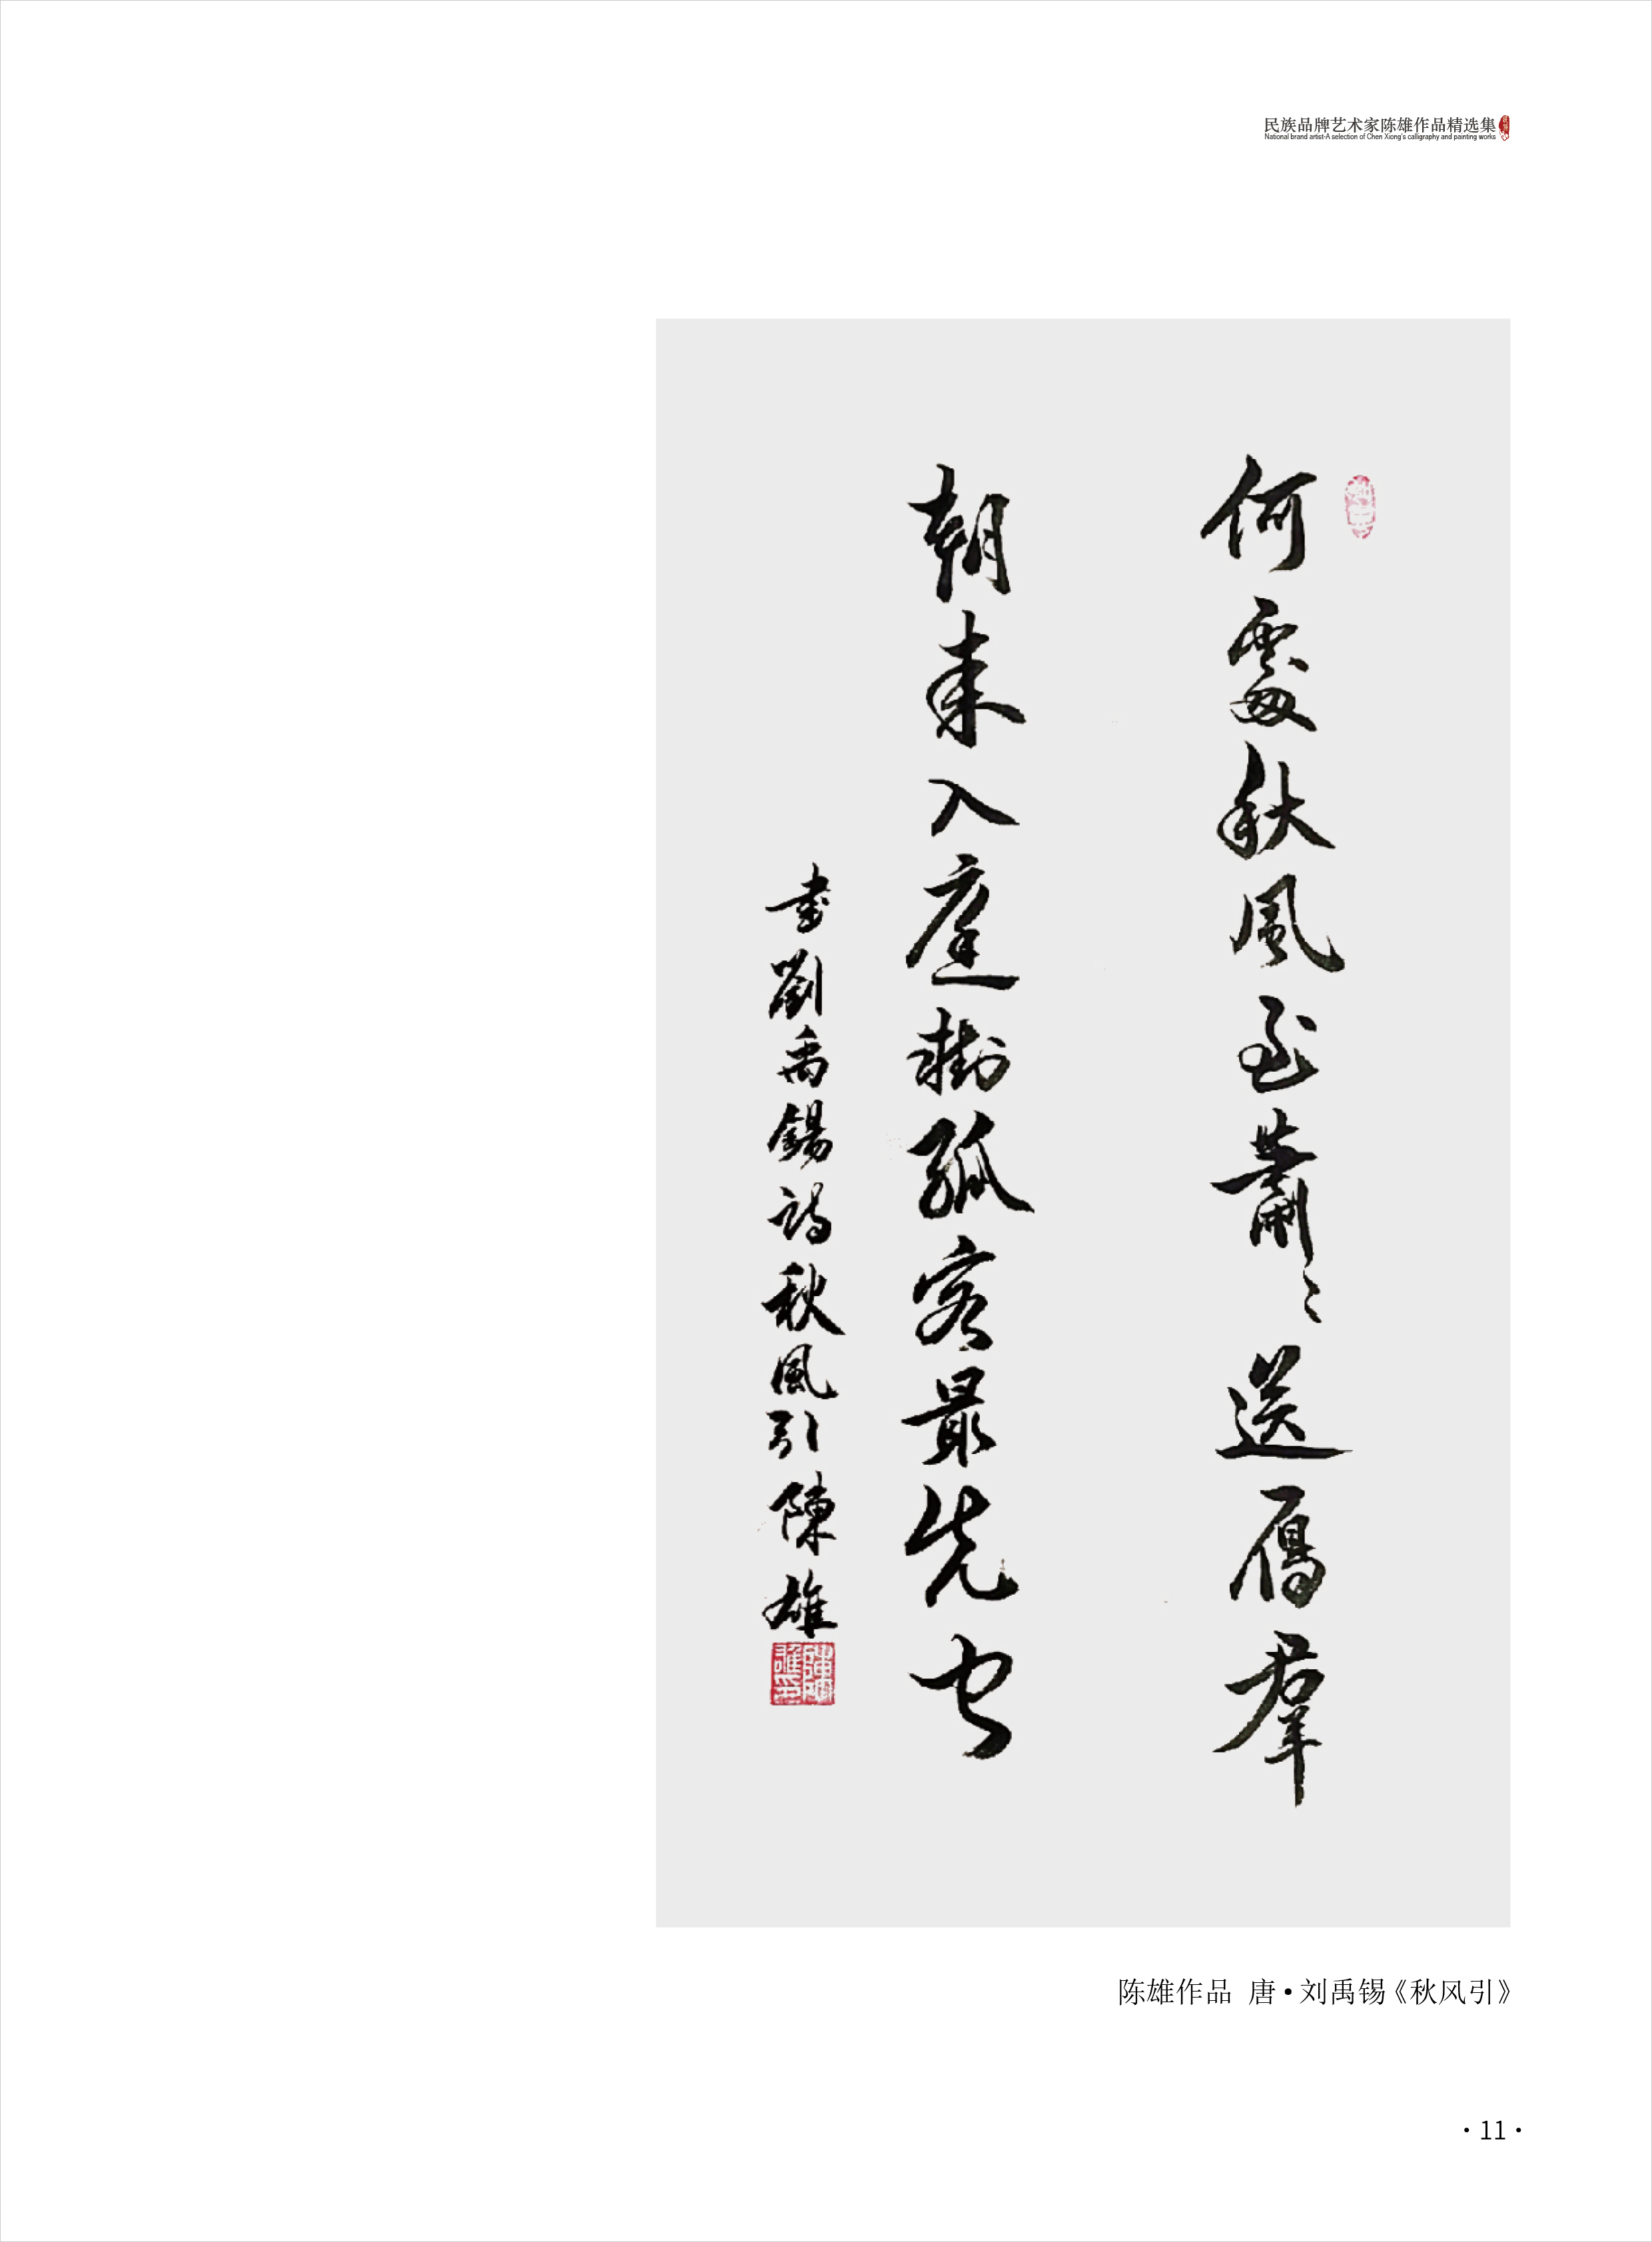 民族品牌艺术家陈雄作品精选集
National brand artist-A selection of Chen Xiong's calligraphy and painting works
何處秋風至蕭〻送鴈羣
朝来入庭樹孤客最先聞
書劉禹錫詩秋風引陳雄
陳雄印
陈雄作品 唐·刘禹锡《秋风引》
·11·